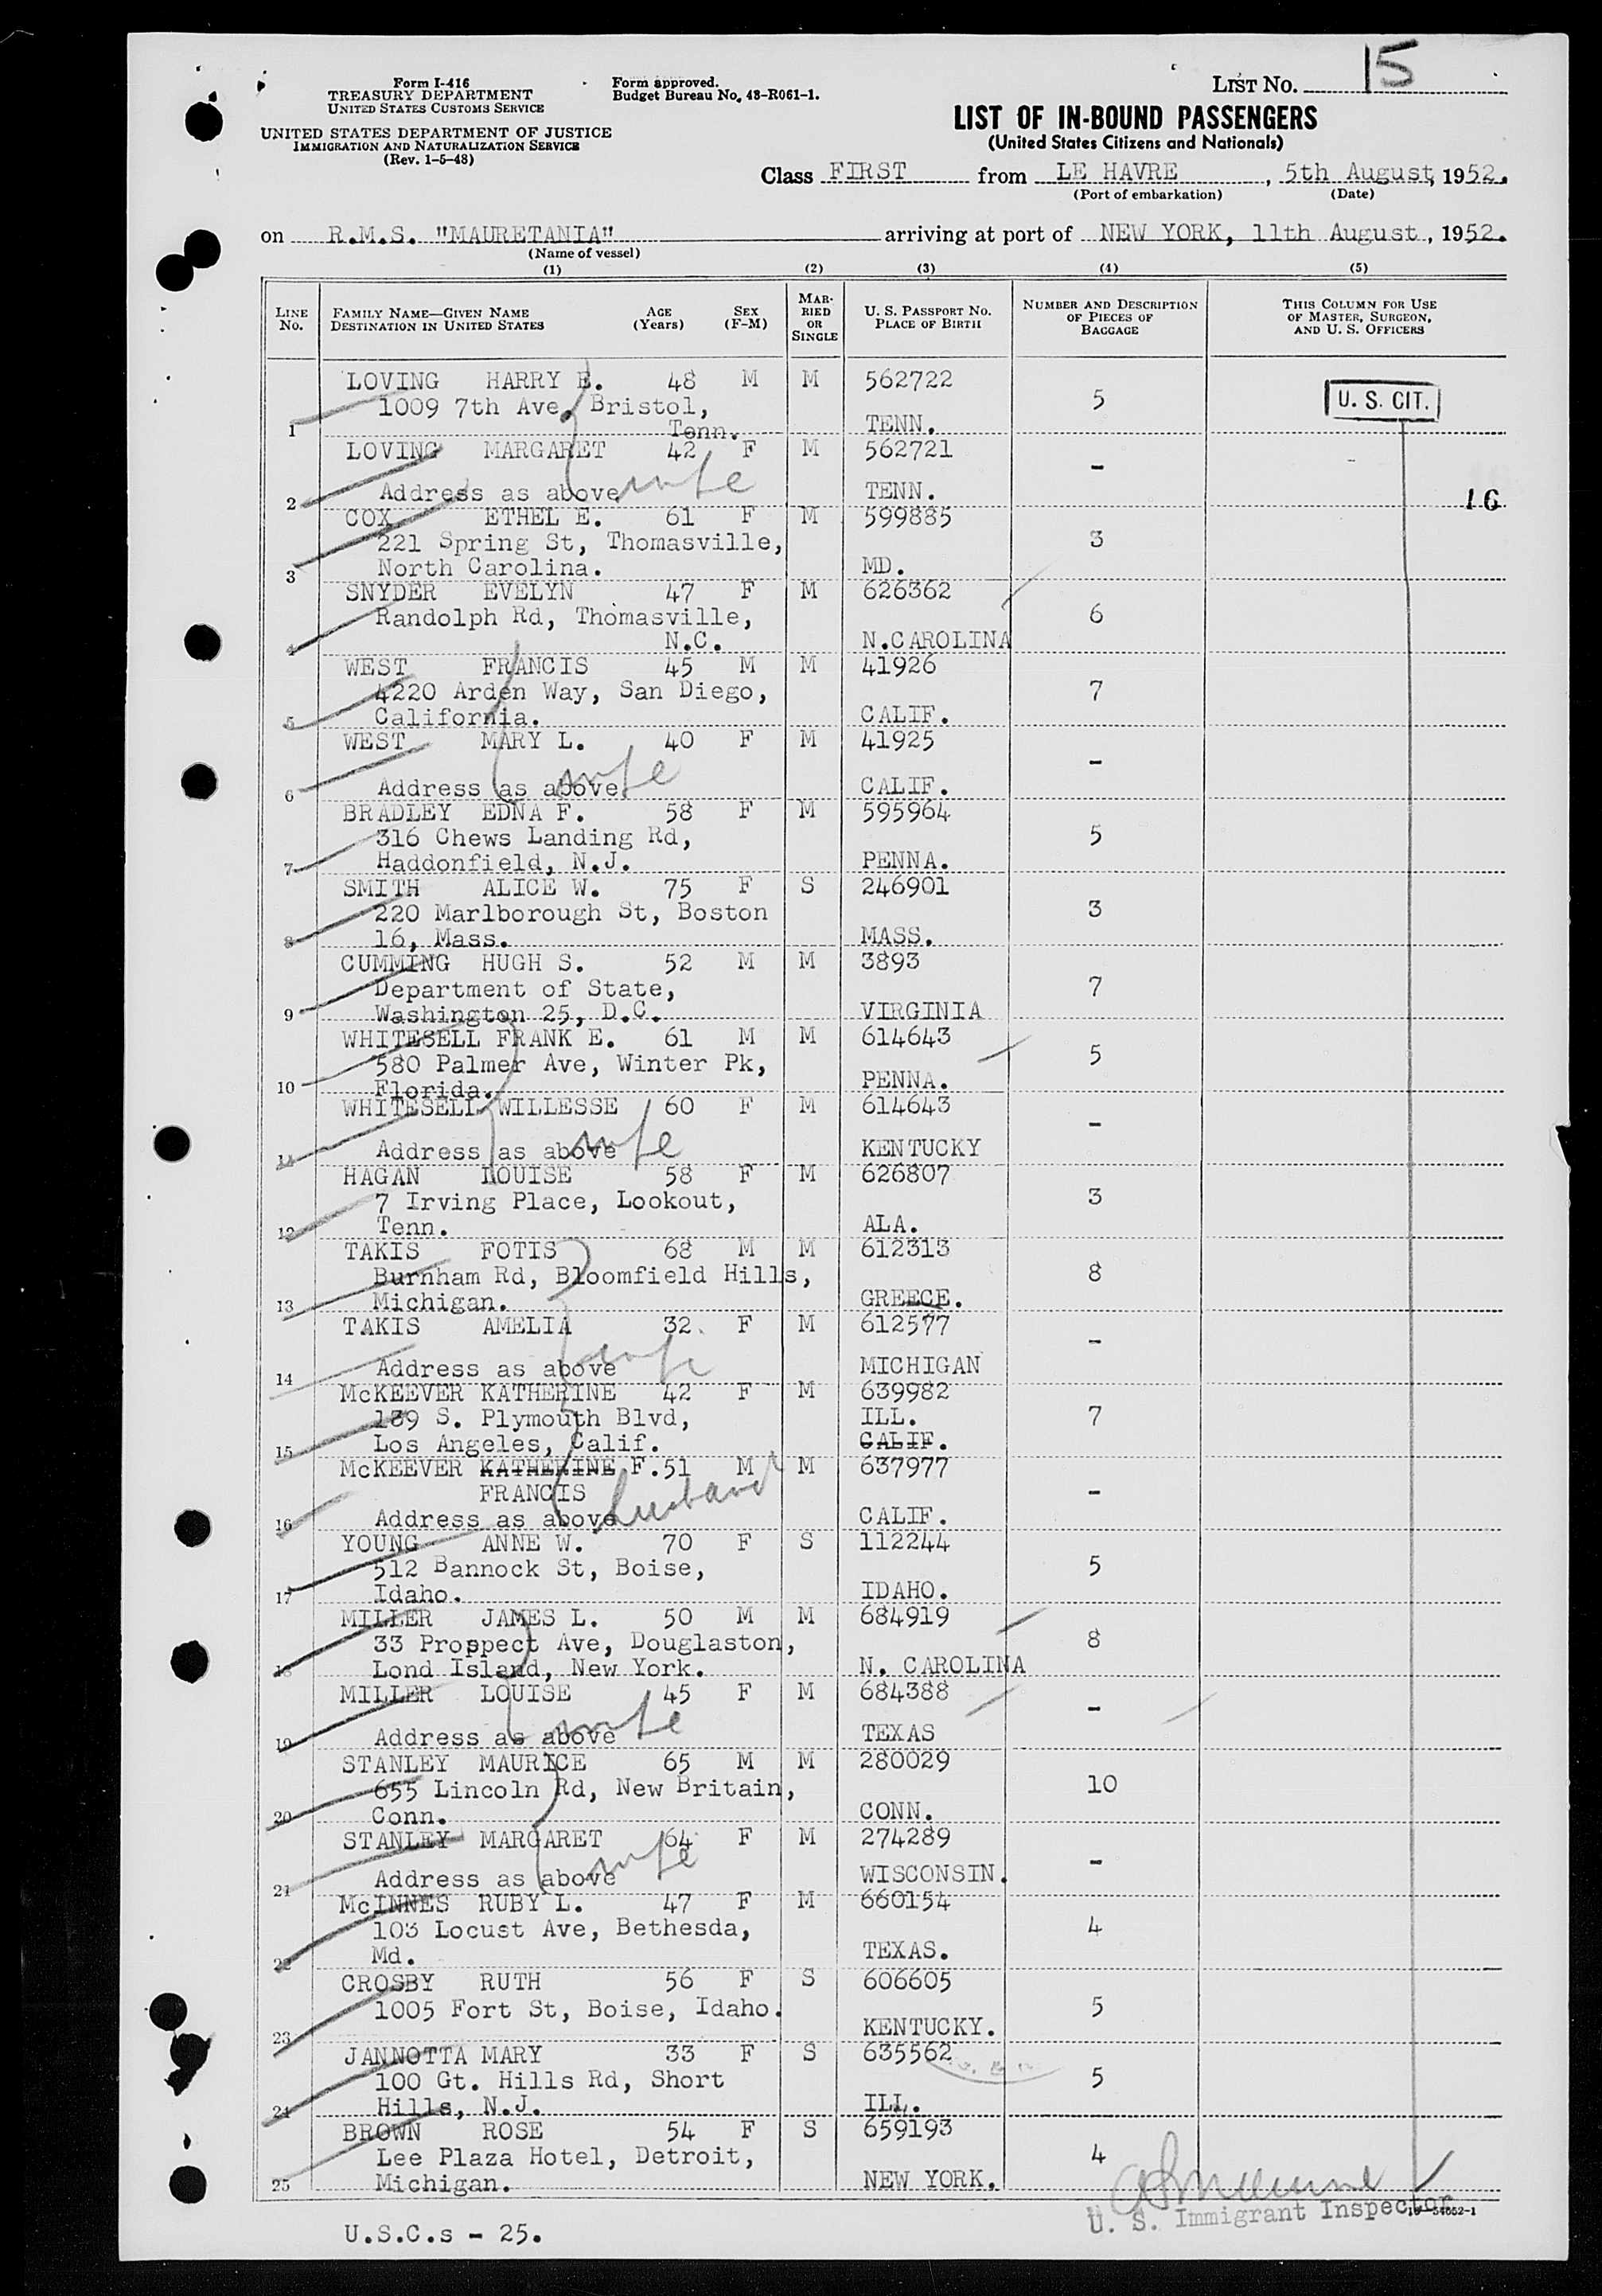 Form I-416
TREASURY DEPARTMENT
UNITED STATES CUSTOMS SERVICE
UNITED STATES DEPARTMENT OF JUSTICE
IMMIGRATION AND NATURALIZATION SERVICE
(Rev. 1-5-48)
Form approved.
Budget Bureau No. 43-R061-1.
LIST NO. 15
LIST OF IN-BOUND PASSENGERS
(United States Citizens and Nationals)
Class FIRST from LE HAVRE, 5th August, 1952.
(Port of embarkation) (Date)
on R.M.S. "MAURETANIA" arriving at port of NEW YORK, 11th August, 1952.
(Name of vessel)
(1) (2) (3) (4) (5)
LINE No. FAMILY NAME—GIVEN NAME DESTINATION IN UNITED STATES AGE (Years) SEX (F-M) MARRIED OR SINGLE U. S. PASSPORT NO. PLACE OF BIRTH NUMBER AND DESCRIPTION OF PIECES OF BAGGAGE THIS COLUMN FOR USE OF MASTER, SURGEON, AND U. S. OFFICERS
LOVING HARRY E. 48 M M 562722
1009 7th Ave, Bristol, 5 U. S. CIT.
1 Tenn. TENN.
LOVING MARGARET 42 F M 562721
wife -
2 Address as above TENN. 16
COX ETHEL E. 61 F M 599885
221 Spring St, Thomasville, 3
3 North Carolina. MD.
SNYDER EVELYN 47 F M 626362
Randolph Rd, Thomasville, 6
4 N.C. N.CAROLINA
WEST FRANCIS 45 M M 41926
4220 Arden Way, San Diego, 7
5 California. CALIF.
WEST MARY L. 40 F M 41925
wife -
6 Address as above CALIF.
BRADLEY EDNA F. 58 F M 595964
316 Chews Landing Rd, 5
7 Haddonfield, N.J. PENNA.
SMITH ALICE W. 75 F S 246901
220 Marlborough St, Boston 3
8 16, Mass. MASS.
CUMMING HUGH S. 52 M M 3893
Department of State, 7
9 Washington 25, D.C. VIRGINIA
WHITESELL FRANK E. 61 M M 614643
580 Palmer Ave, Winter Pk, 5
10 Florida. PENNA.
WHITESELL WILLESSE 60 F M 614643
wife -
11 Address as above KENTUCKY
HAGAN LOUISE 58 F M 626807
7 Irving Place, Lookout, 3
12 Tenn. ALA.
TAKIS FOTIS 68 M M 612313
Burnham Rd, Bloomfield Hills, 8
13 Michigan. GREECE.
TAKIS AMELIA 32 F M 612577
wife -
14 Address as above MICHIGAN
McKEEVER KATHERINE 42 F M 639982
189 S. Plymouth Blvd, ILL. 7
15 Los Angeles, Calif. CALIF.
McKEEVER KATHERINE F. 51 M M 637977
FRANCIS husband -
16 Address as above CALIF.
YOUNG ANNE W. 70 F S 112244
512 Bannock St, Boise, 5
17 Idaho. IDAHO.
MILLER JAMES L. 50 M M 684919
33 Prospect Ave, Douglaston, 8
18 Lond Island, New York. N. CAROLINA
MILLER LOUISE 45 F M 684388
wife -
19 Address as above TEXAS
STANLEY MAURICE 65 M M 280029
655 Lincoln Rd, New Britain, 10
20 Conn. CONN.
STANLEY MARGARET 64 F M 274289
wife -
21 Address as above WISCONSIN.
McINNES RUBY L. 47 F M 660154
103 Locust Ave, Bethesda, 4
22 Md. TEXAS.
CROSBY RUTH 56 F S 606605
1005 Fort St, Boise, Idaho. 5
23 KENTUCKY.
JANNOTTA MARY 33 F S 635562
100 Gt. Hills Rd, Short 5
24 Hills, N.J. ILL.
BROWN ROSE 54 F S 659193
Lee Plaza Hotel, Detroit, 4
25 Michigan. NEW YORK.
U. S. Immigrant Inspector
U.S.C.s - 25.